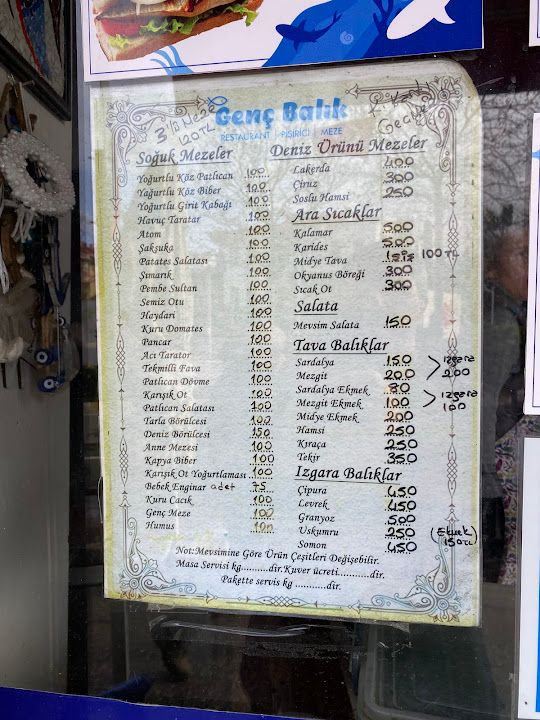 Genç Balık
RESTAURANT | PİŞİRİCİ | MEZE
120TL
Soğuk Mezeler
Yoğurtlu Köz Patlican 100
Yağurtlu Köz Biber 100
Yoğurtlu Girit Kabağı 100
Havuç Taratar 100
Atom 100
Şakşuka 100
Patates Salatası 100
Sımarık 100
Pembe Sultan 100
Semiz Otu 100
Haydari 100
Kuru Domates 100
Pancar 100
Acı Tarator 100
Tekmilli Fava 100
Patlıcan Dövme 100
Karışık Ot 100
Patlıcan Salatası 100
Tarla Börülcesi 100
Deniz Börülcesi 150
Anne Mezesi 100
Kapya Biber 100
Karışık Ot Yoğurtlaması 100
Bebek Enginar adet 75
Kuru Cacık 100
Genç Meze 100
Humus 100
Deniz Ürünü Mezeler
Lakerda 400
Çiruz 300
Soslu Hamsi 250
Ara Sıcaklar
Kalamar 500
Karides 500
Midye Tava 1 şiş 100 TL
Okyanus Böreği 300
Sıcak Ot 300
Salata
Mevsim Salata 150
Tava Balıklar
Sardalya 150
Mezgit 200
ızgara 200
Sardalya Ekmek 90
Mezgit Ekmek 100
ızgara 100
Midye Ekmek 200
Hamsi 250
Kıraça 250
Tekir 350
Izgara Balıklar
Çipura 450
Levrek 450
Granyoz 500
Uskumru 250 (Ekmek 150TL)
Somon 450
Not:Mevsimine Göre Ürün Çeşitleri Değişebilir.
Masa Servisi kg..........dir.Kuver ücreti...........dir.
Pakette servis kg ...........dir.